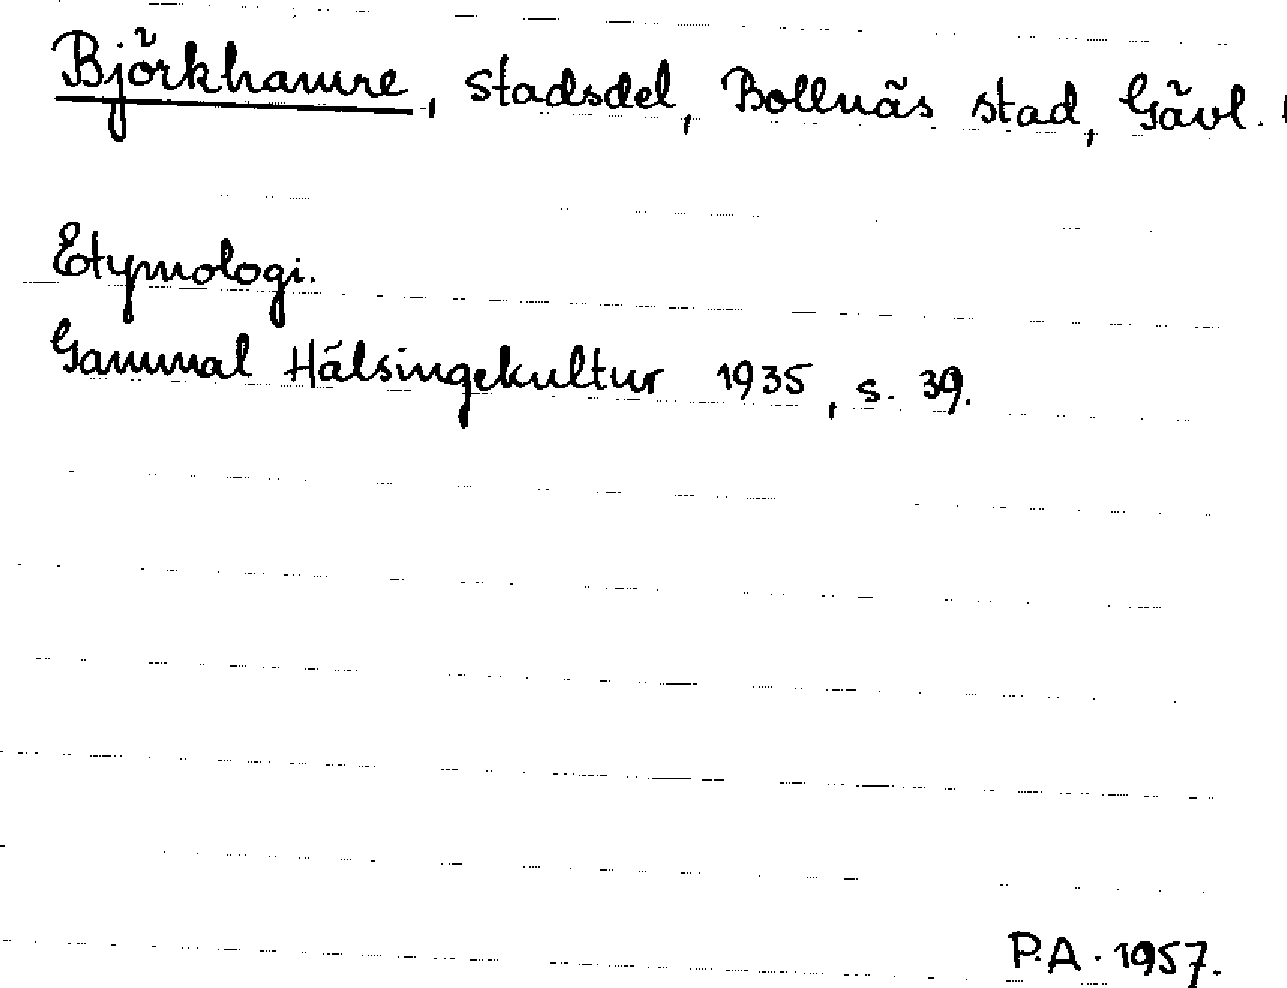 Björkhamre, stadsdel, Bollnäs stad, Gävl.
Etymologi.
Gammal Hälsingekultur 1935, s. 39.
P.A. 1957.